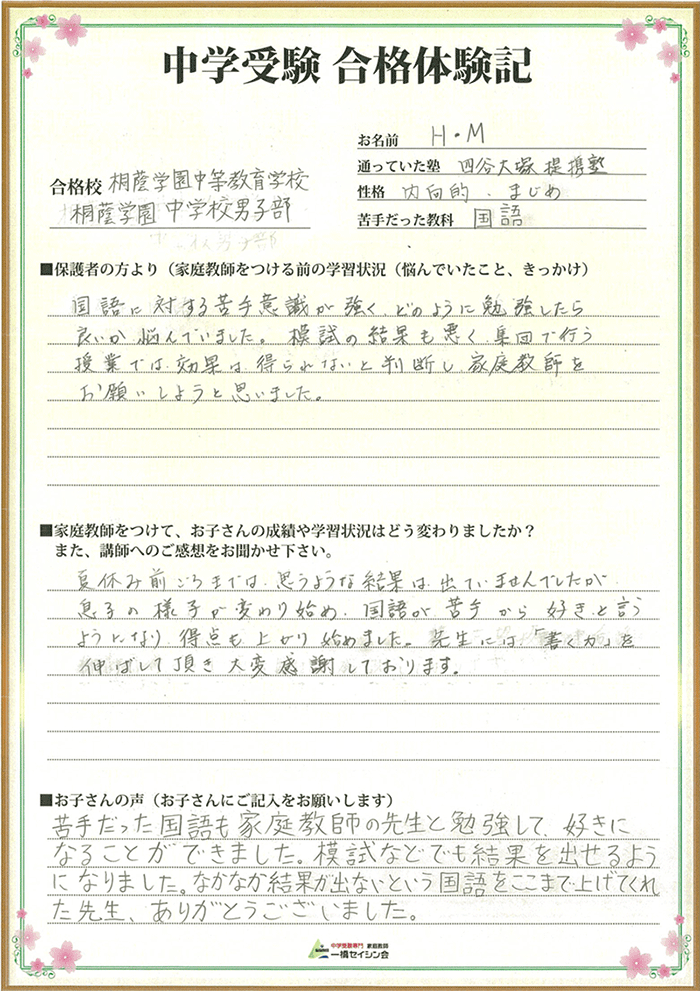 中学受験 合格体験記
お名前 H・M
通っていた塾 四谷大塚提携塾
合格校 桐蔭学園中等教育学校
桐蔭学園 中学校男子部
性格 内向的、まじめ
苦手だった教科 国語
■保護者の方より（家庭教師をつける前の学習状況（悩んでいたこと、きっかけ）
国語に対する苦手意識が強く、どのように勉強したら
良いか悩んでいました。模試の結果も悪く、集団で行う
授業では効果は得られないと判断し、家庭教師を
お願いしようと思いました。
■家庭教師をつけて、お子さんの成績や学習状況はどう変わりましたか？
また、講師へのご感想をお聞かせ下さい。
夏休み前ごろまでは、思うような結果は出ていませんでしたが、
息子の様子が変わり始め、国語が苦手から好きと言う
ようになり、得点も上がり始めました。先生には、「書く力」を
伸ばして頂き大変感謝しております。
■お子さんの声（お子さんにご記入をお願いします）
苦手だった国語も家庭教師の先生と勉強して、好きに
なることができました。模試などでも結果を出せるよう
になりました。なかなか結果が出ないという国語をここまで上げてくれ
た先生、ありがとうございました。
中学受験専門 家庭教師
一橋セイシン会